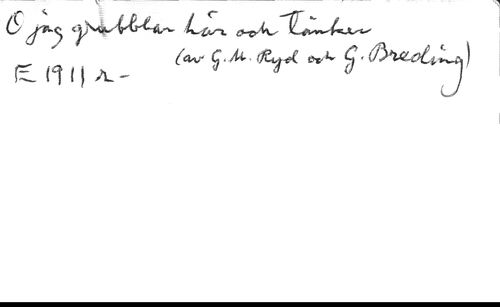 O jag grubblar här och tänker
(av G. M. Ryd och G. Breding)
E 1911 r-